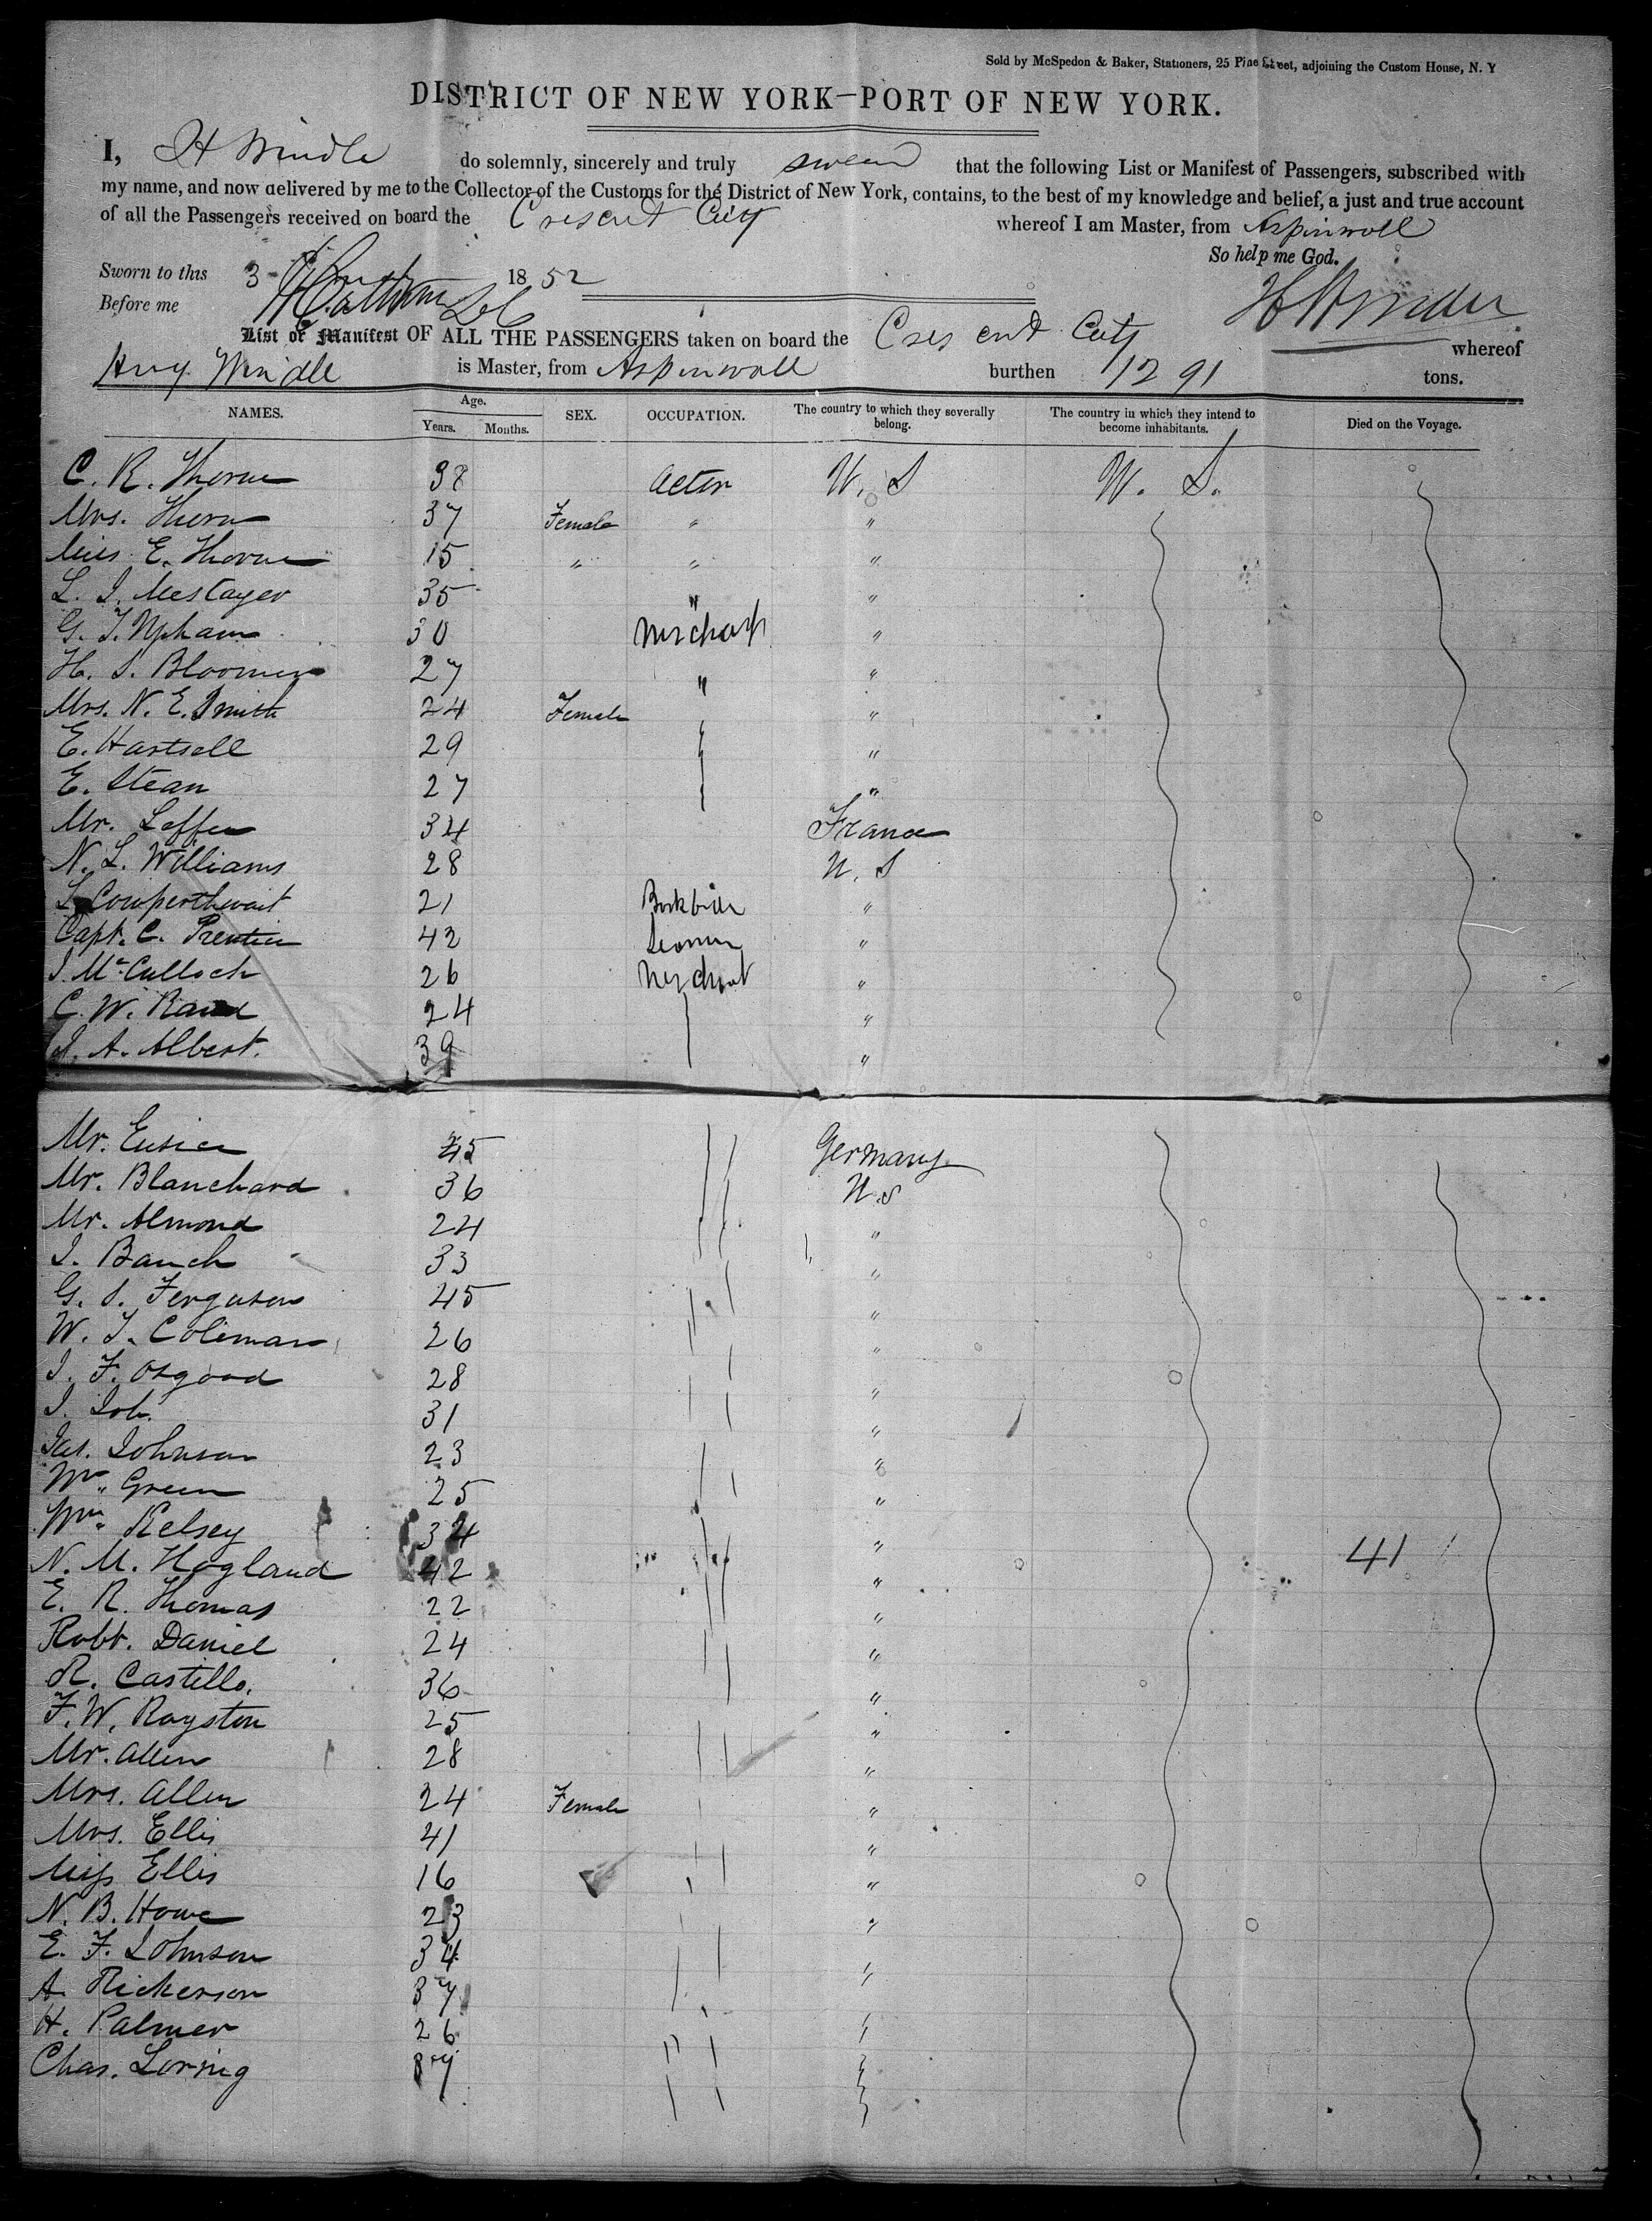 Sold by McSpedon & Baker, Stationers, 25 Pine Street, adjoining the Custom House, N. Y
DISTRICT OF NEW YORK—PORT OF NEW YORK.
I, H Windle do solemnly, sincerely and truly swear that the following List or Manifest of Passengers, subscribed with
my name, and now delivered by me to the Collector of the Customs for the District of New York, contains, to the best of my knowledge and belief, a just and true account
of all the Passengers received on board the Crescent City whereof I am Master, from Aspinwall
So help me God.
Sworn to this 3 1852
Before me
List or Manifest OF ALL THE PASSENGERS taken on board the Crescent City whereof
Hny Windle is Master, from Aspinwall burthen 1291 tons.
NAMES. Age. Years. Months. SEX. OCCUPATION. The country to which they severally belong. The country in which they intend to become inhabitants. Died on the Voyage.
C. R. Thorne 38 Actor U. S U. S.
Mrs. Thorn 37 Female " "
Miss E. Thorne 15 " " "
L. J. Mestayer 35 " "
G. T. Upham 30 Merchant "
H. S. Bloomer 27 " "
Mrs. N. E. Smith 24 Female "
E. Hartsell 29 "
E. Stean 27 "
Mr. Laffer 34 France
N. L. Williams 28 U. S
Cowperthwait 21 "
Capt. C. Prentice 42 Seaman "
J. McCulloch 26 Merchant "
C. W. Rand 24 "
J. A. Albert. 39 "
Mr. 45 Germany
Mr. Blanchard 36 U.S
Mr. Almond 24 "
J. Bauch 33 "
G. S. Ferguson 45 "
W. T. Coleman 26 "
J. F. Osgood 28 "
J. Job. 31 "
Jas. Johnson 23 "
Wm. Green 25 "
Wm. Kelsey 34 "
N. M. Hogland 42 " 41
E. R. Thomas 22 "
Robt. Daniel 24 "
R. Castillo. 36 "
F. W. Royston 25 "
Mr. Allen 28 "
Mrs. Allen 24 Female "
Mrs. Ellis 41 "
Miss Ellis 16 "
N. B. Howe 23 "
E. F. Johnson 34 "
A. Rickerson 37
H. Palmer 26
Chas. Loring 37